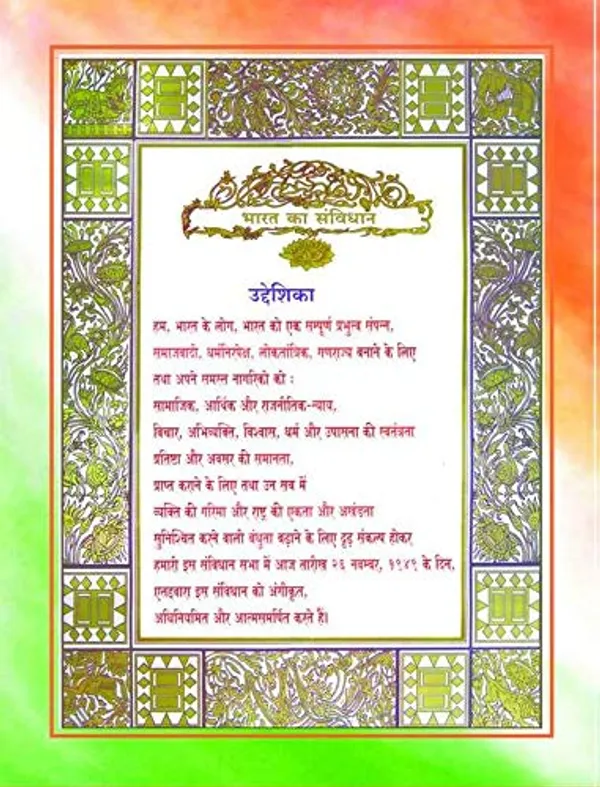 भारत का संविधान
उद्देशिका
हम, भारत के लोग, भारत को एक सम्पूर्ण प्रभुत्व संपन्न,
समाजवादी, धर्मनिरपेक्ष, लोकतांत्रिक, गणराज्य बनाने के लिए
तथा अपने समस्त नागरिकों को :
सामाजिक, आर्थिक और राजनीतिक-न्याय,
विचार, अभिव्यक्ति, विश्वास, धर्म और उपासना की स्वतंत्रता
प्रतिष्ठा और अवसर की समानता,
प्राप्त कराने के लिए तथा उन सब में
व्यक्ति की गरिमा और राष्ट्र की एकता और अखंडता
सुनिश्चित करने वाली बंधुता बढ़ाने के लिए दृढ़ संकल्प होकर
हमारी इस संविधान सभा में आज तारीख २६ नवम्बर, १९४९ के दिन,
एतद्द्वारा इस संविधान को अंगीकृत,
अधिनियमित और आत्मसमर्पित करते हैं।